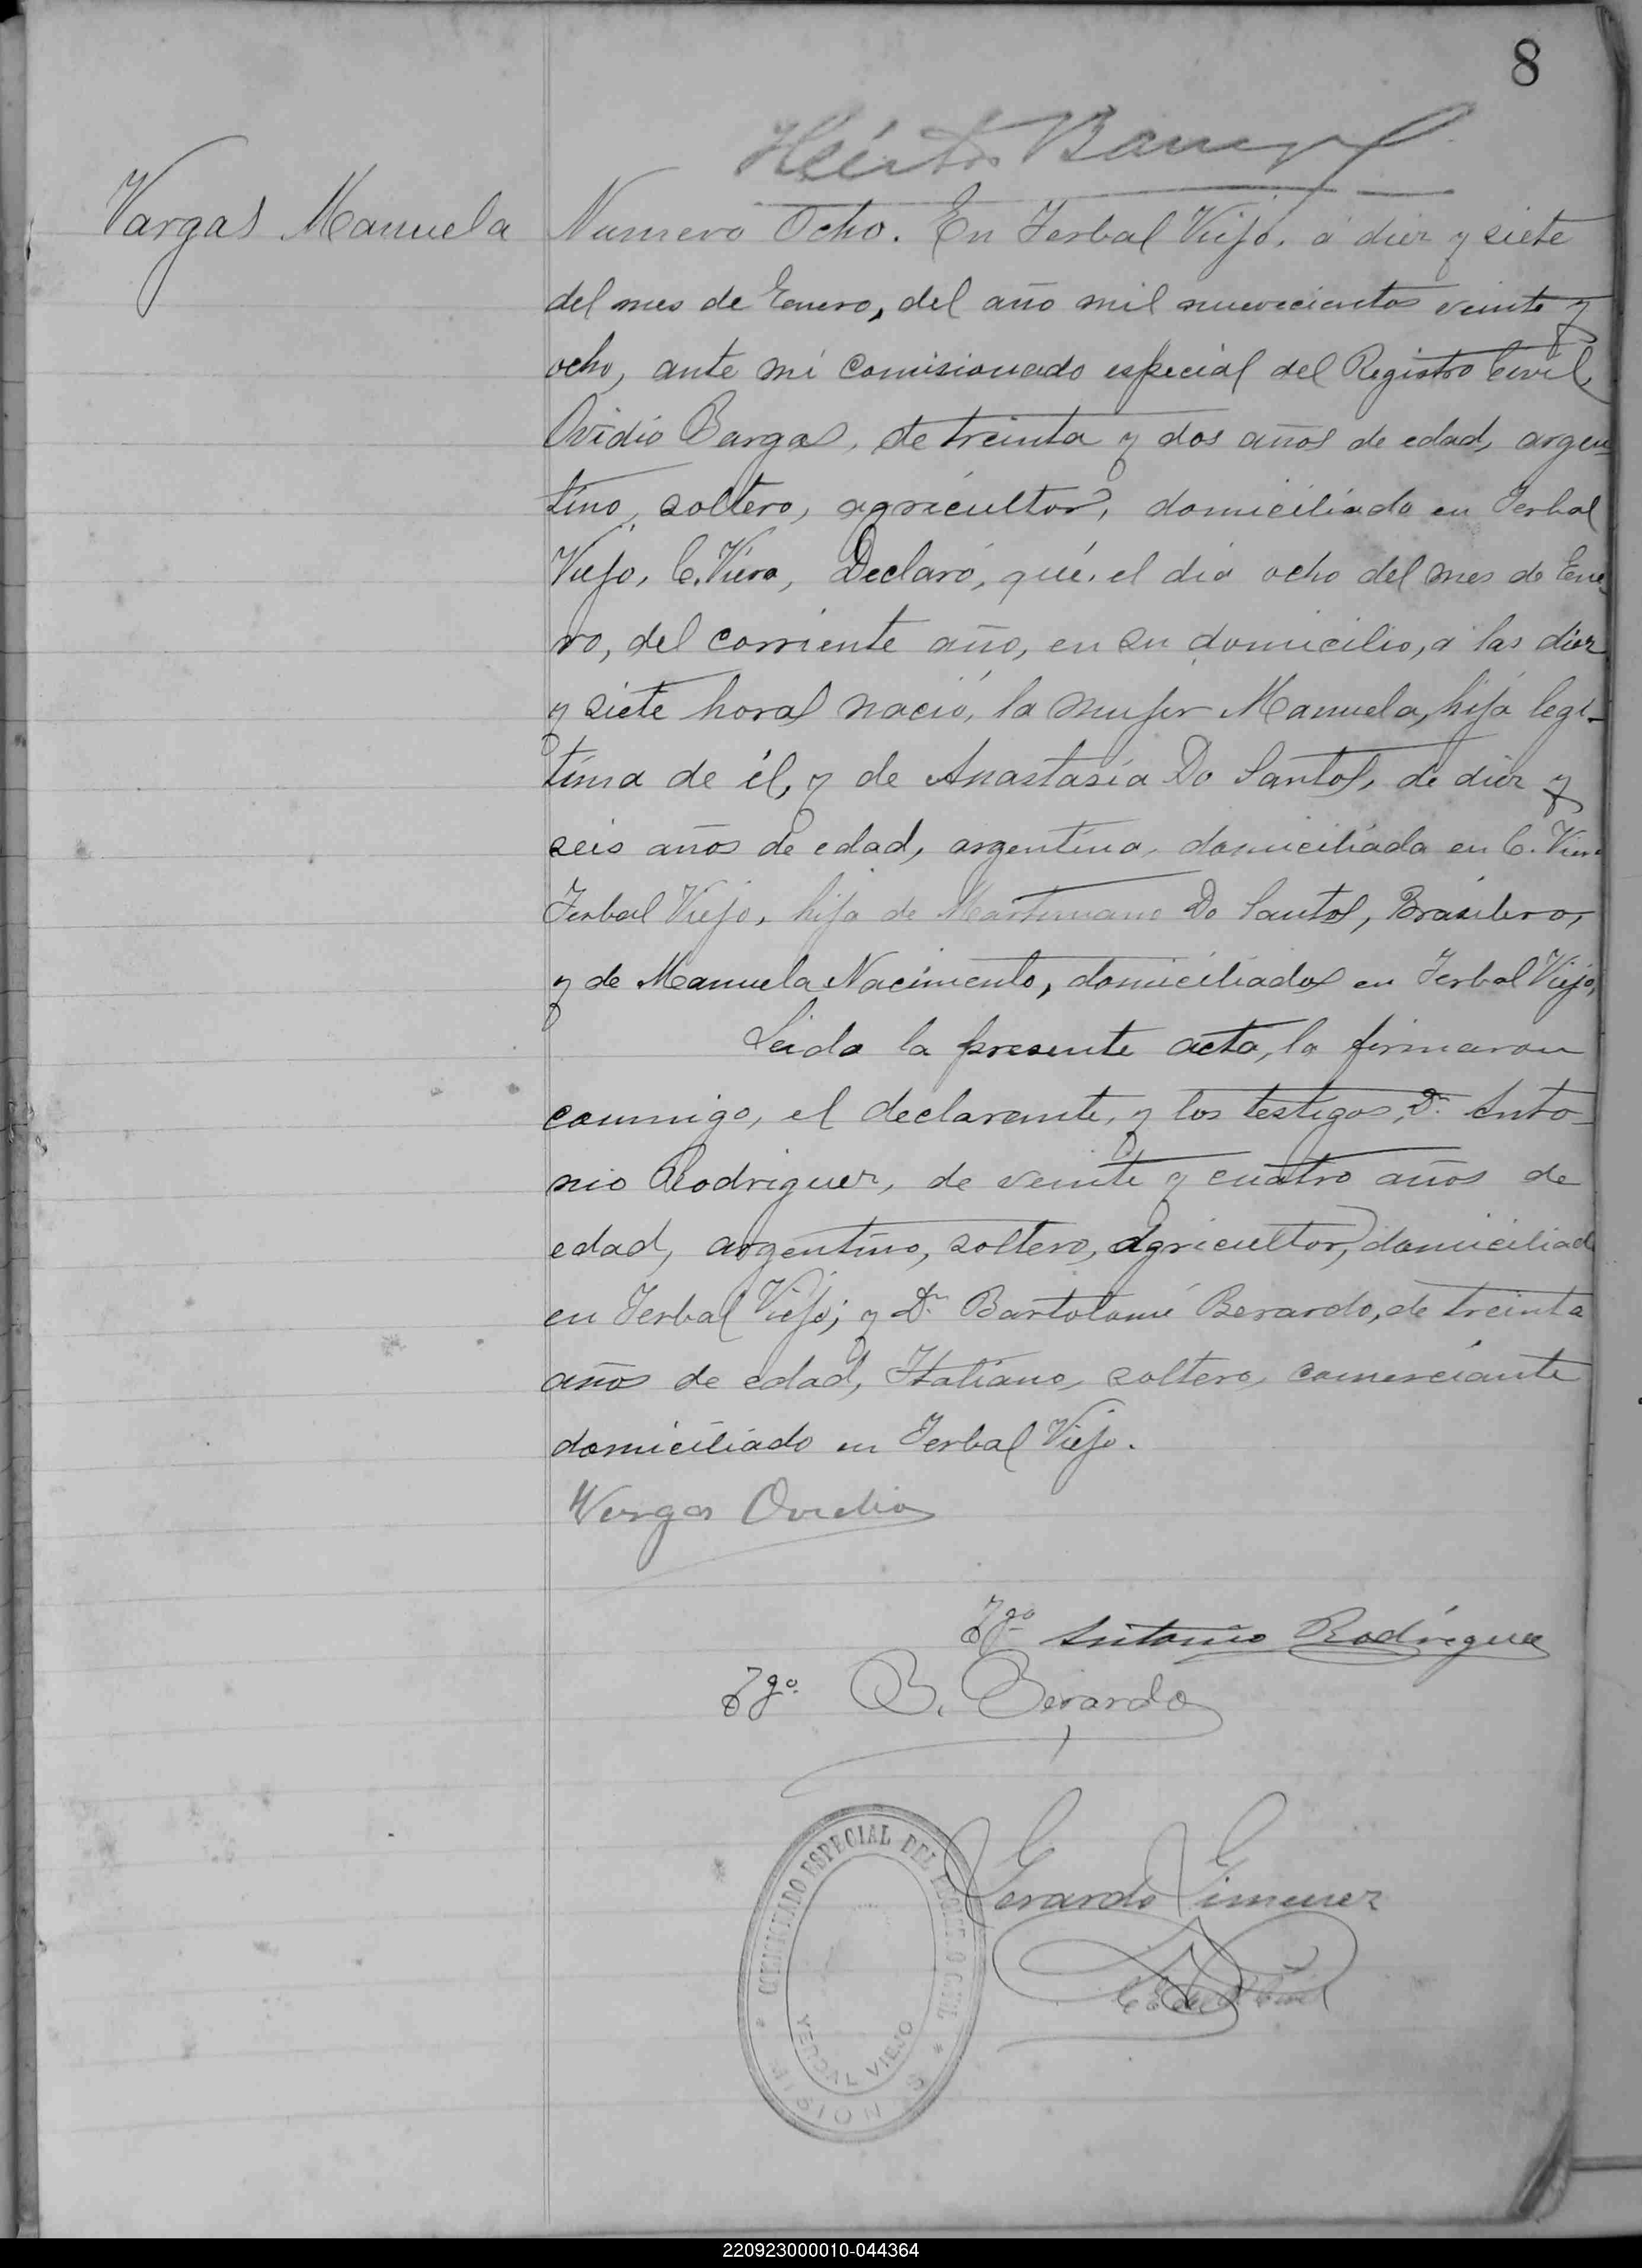 8
Héctor Barreyro
Vargas Manuela
Numero Ocho. En Yerbal Viejo, á diez y siete
del mes de Enero, del año mil nuevecientos veinte y
ocho, ante mi comisionado especial del Registro Civil,
Ovidio Bargas, de treinta y dos años de edad, argen-
tino, soltero, agricultor, domiciliado en Yerbal
Viejo, C. Viera, Declaró, qué, el dia ocho del mes de Ene-
ro, del corriente año, en su domicilio, a las diez
y siete horas nació, la mujer Manuela, hija legi-
tima de él, y de Anastasia Do Santos, de diez y
seis años de edad, argentina, domiciliada en C. Viera
Yerbal Viejo, hija de Martimiano Do Santos, Brasilero,
y de Manuela Nacimento, domiciliados en Yerbal Viejo,
Leida la presente acta, la firmaron
conmigo, el declarante, y los testigos, Dn. Anto-
nio Rodriguez, de veinte y cuatro años de
edad, argentino, soltero, Agricultor, domiciliad
en Yerbal Viejo; y Dn. Bartolomé Berardo, de treinta
años de edad, Italiano, soltero, comerciante
domiciliado en Yerbal Viejo.
Vergas Ovidio
Tgo Antonio Rodriguez
Tgo. B. Berardo
Gerardo Gimenez
COMISIONADO ESPECIAL DEL REGISTRO CIVIL
YERBAL VIEJO
* MISIONES *
220923000010-044364